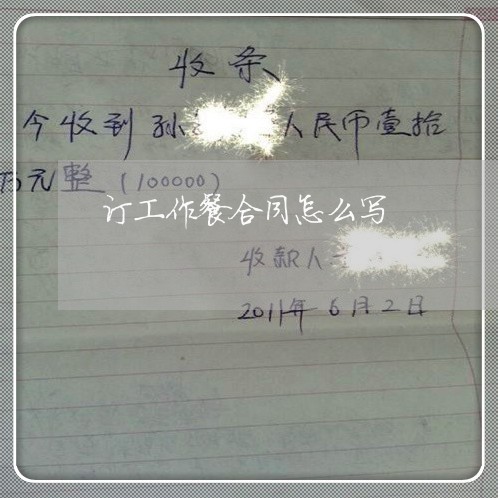 收条
今收到孙 人民币壹拾
万元整（100000）
订工作餐合同怎么写
收款人
2011年6月2日